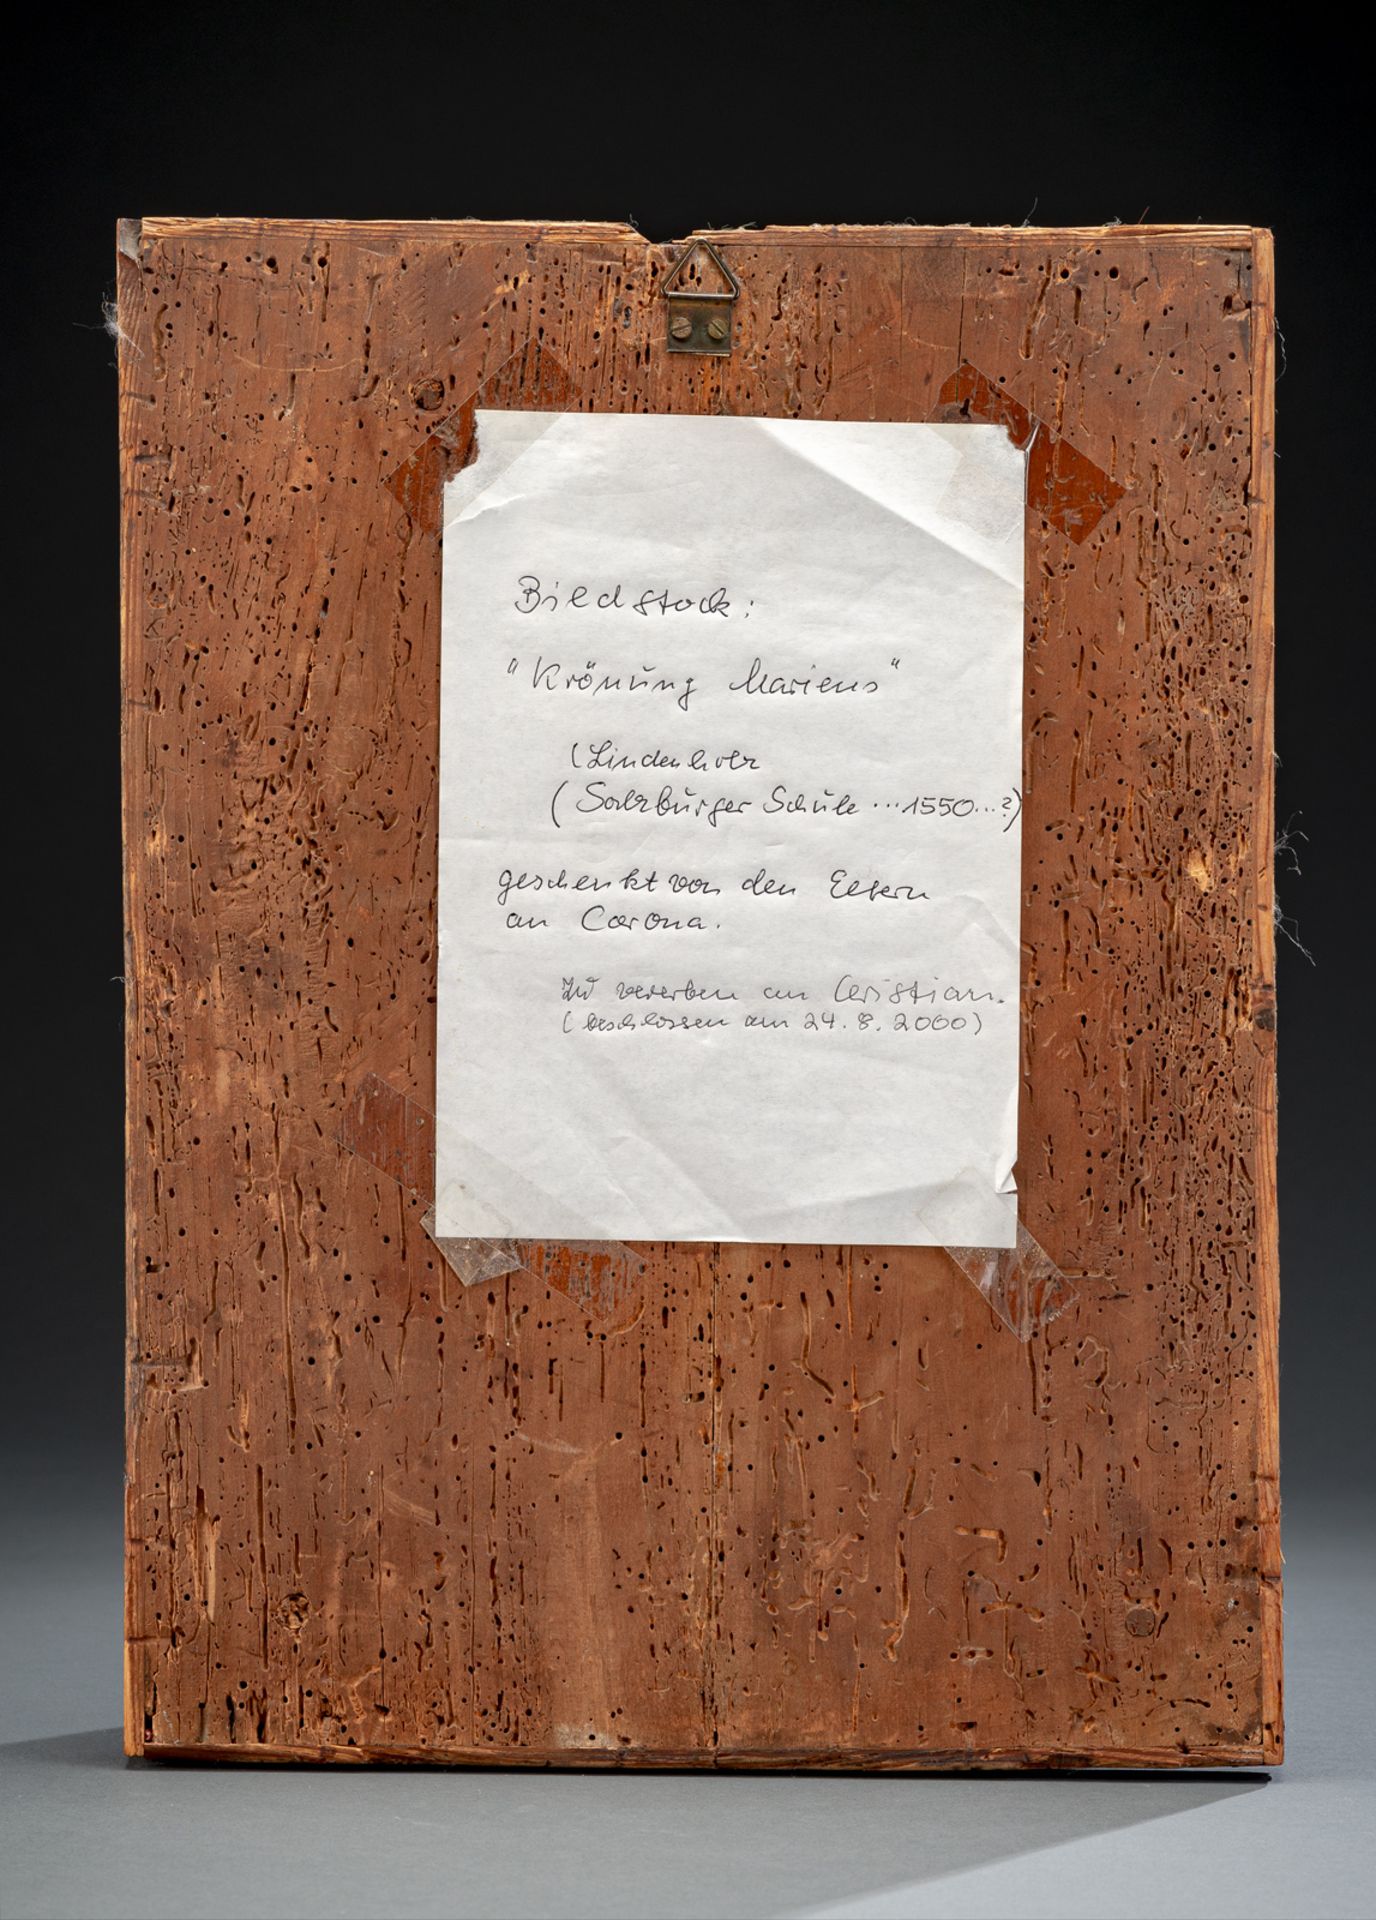 Bildstock:
"Krönung Mariens"
(Lindenholz
(Salzburger Schule ...1550...?)
geschenkt von den Eltern
an Corona.
Zu vererben an Christian.
(beschlossen am 24.8.2000)